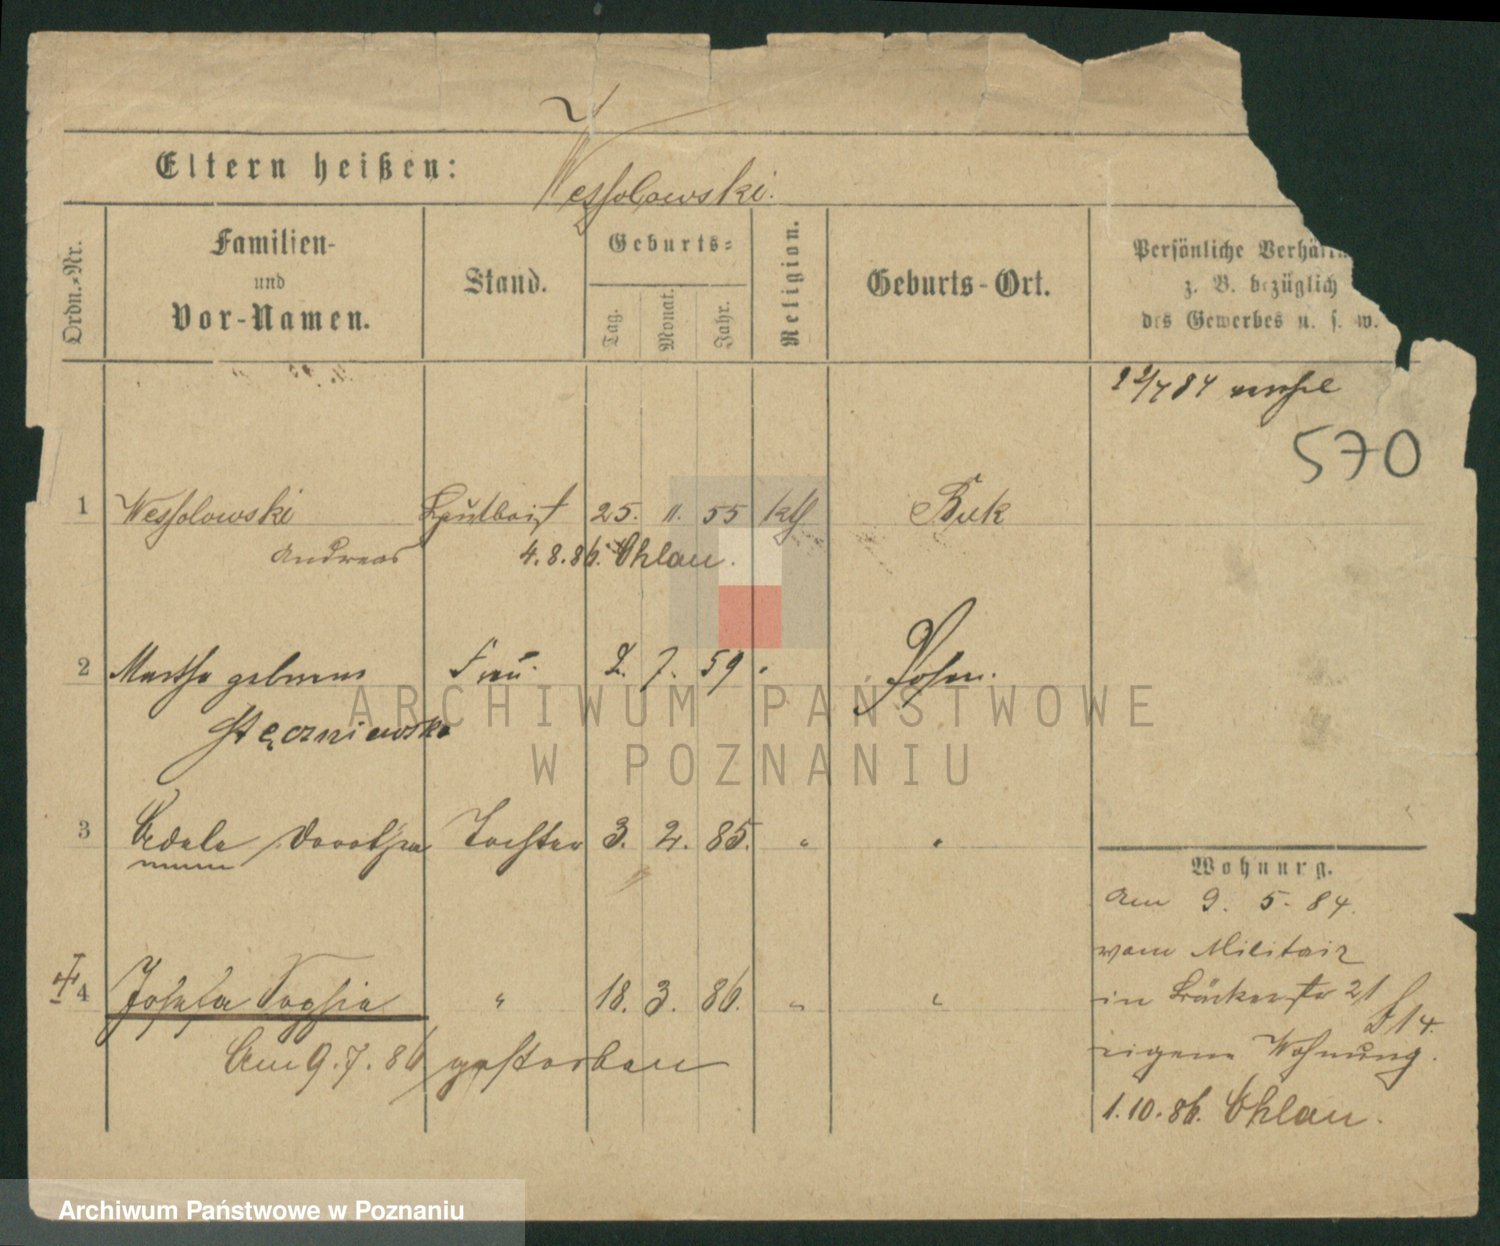 Eltern heißen:
Wessolowski.
Ordn.-Nr.
Familien-
und
Vor-Namen.
Stand.
Geburts-
Tag.
Monat.
Jahr.
Religion.
Geburts-Ort.
Persönliche Verhält
z. B. bezüglich
des Gewerbes u. s. w.
84
570
1 Wessolowski 25. 11. 55 kth Buk
Andreas 4.8.86. Ohlau.
2 Martha geborene Frau. 2. 7. 59 Posen.
Stęczniewska
3 Adele Dorothea Tochter 3. 2. 85. " "
4 Josefa Sophia " 18. 3. 86. " "
Am 9.7.86 gestorben
Wohnung.
Am 9. 5. 84.
vom Militair
in Bäckerstr 21
eigene Wohnung.
1.10.86. Ohlau.
ARCHIWUM PAŃSTWOWE
W POZNANIU
Archiwum Państwowe w Poznaniu